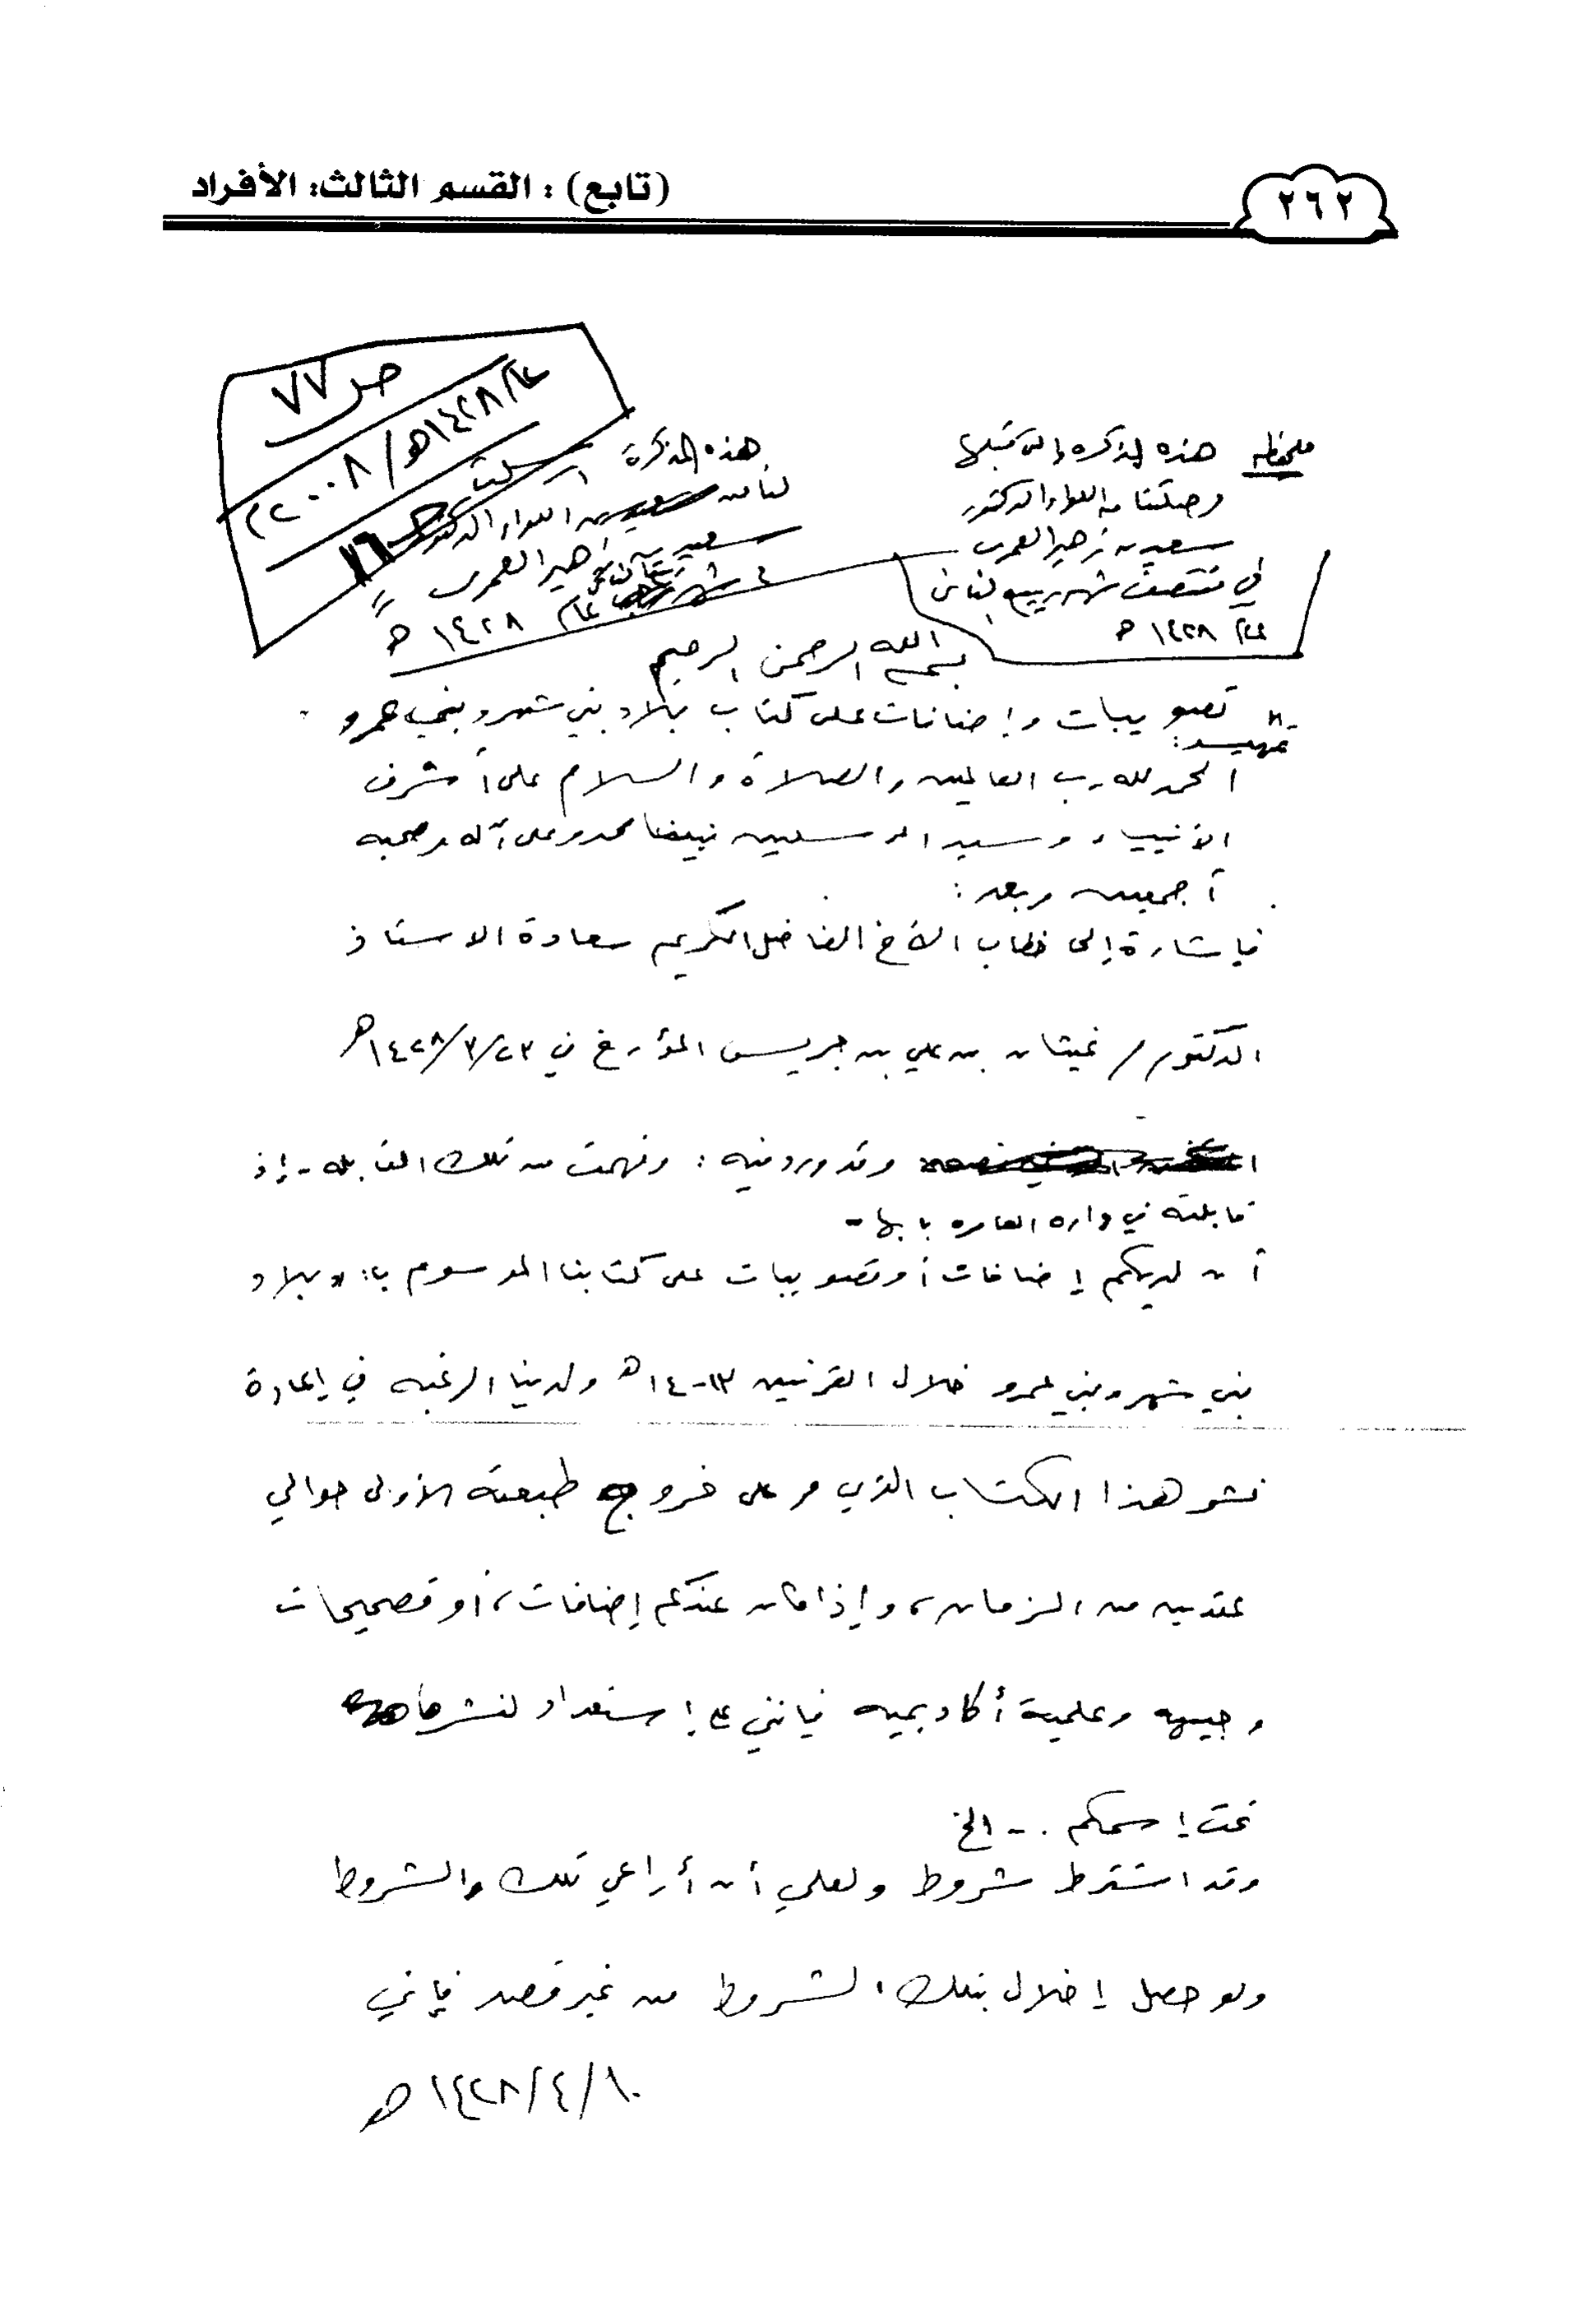 (تابع) : القسم الثالث: الأفراد
٢٦٢
ص ٧٧
عام ١٤٢٨هـ / ٢٠٠٨م
هذه المذكرة سلمت
لنا من اللواء الدكتور
سعيد بن زهير العمري
عام ١٤٢٨ هـ
ملحوظه هذه المذكره
وصلتنا من اللواء الدكتور
سعيد بن زهير العمري
في منتصف شهر ربيع الثاني
عام ١٤٢٨ هـ
بسم الله الرحمن الرحيم
تصويبات وإضافات على كتاب بلاد بني شهر وبني عمرو
تمهيد:
الحمد لله رب العالمين والصلاة والسلام على أشرف
الأنبياء وسيد المرسلين نبينا محمد وعلى آله وصحبه
أجمعين وبعد :
فإشارة إلى خطاب الأخ الفاضل الكريم سعادة الاستاذ
الدكتور / غيثان بن علي بن جريس المؤرخ في ٢٣/٣/١٤٢٨هـ
وقد ورد فيه : وفهمت من تلك المقابله - إذ
قابلته في داره العامره بابها -
أن لديكم إضافات أو تصويبات على كتابنا الموسوم بـ: "بلاد
بني شهر وبني عمرو خلال القرنين ١٣-١٤هـ ولدينا الرغبه في إعادة
نشر هذا الكتاب الذي مر على خروج طبعته الأولى حوالي
عقدين من الزمان، وإذا كان عندكم إضافات، أو تصحيحات
وجيهه وعلمية أكاديميه فإنني على إستعداد لنشرها
تحت إسمكم .- الخ
وقد اشترط شروط ولعلي أن أراعي تلك الشروط
ولو حصل إخلال بتلك الشروط من غير قصد فإني
١٠/٤/١٤٢٨هـ